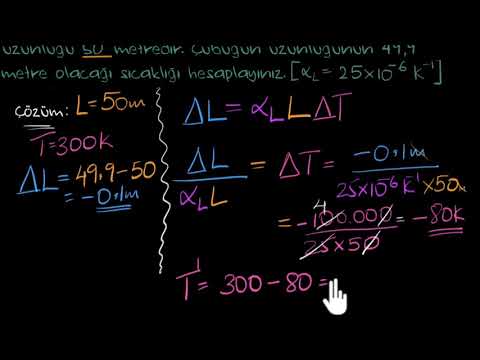 uzunluğu 50 metredir. Çubuğun uzunluğunun 49,9
metre olacağı sıcaklığı hesaplayınız. [α_L = 25×10⁻⁶ K⁻¹]
çözüm: L = 50m
T = 300K
ΔL = 49,9 - 50
= -0,1m
ΔL = α_L L ΔT
ΔL / α_L L = ΔT = -0,1m / 25×10⁻⁶ K⁻¹ × 50m
= -100.000 / 25×50 = -80K
4
T¹ = 300 - 80 =